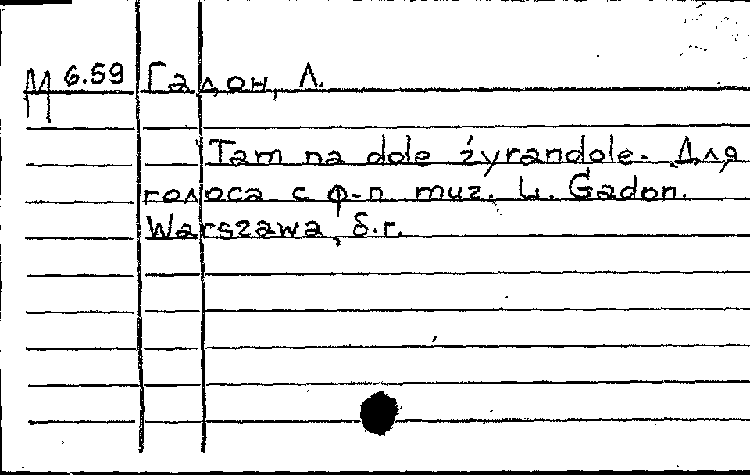 М 6.59 Гадон, Л.
Tam na dole żyrandole. Для
голоса с ф-п muz. L. Gadon.
Warszawa, б.г.